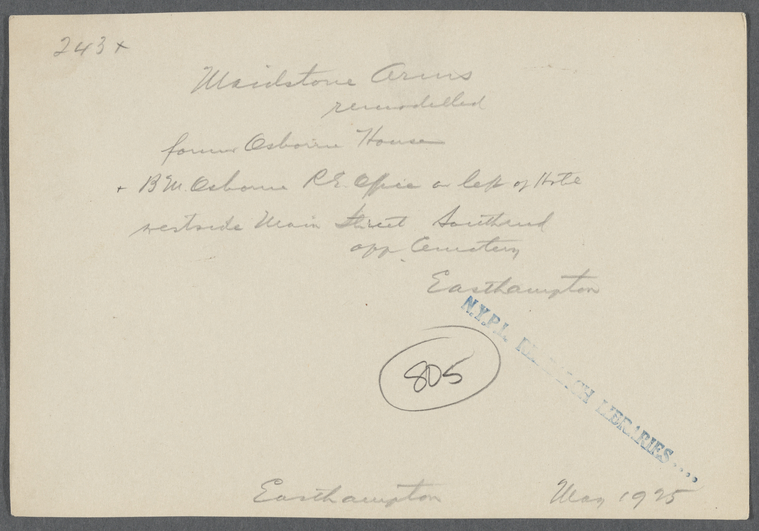 243+
Maidstone Arms
remodelled
former Osborne House
+ B.M. Osborne R.E. Office on left of Hotel
westside Main Street Southend
opp. Cemetery
Easthampton
N.Y.P.L. RESEARCH LIBRARIES....
805
Easthampton May 1925